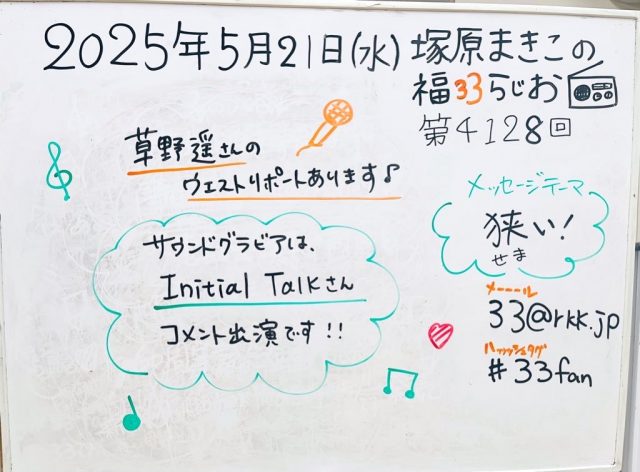 2025年5月21日(水) 塚原まきこの
福33らじお
第4128回
草野遥さんの
ウエストリポートあります♪
サウンドグラビアは、
Initial Talkさん
コメント出演です!!
メッセージテーマ
狭い!
せま
メーール
33@rkk.jp
ハッッシュタグ
#33fan